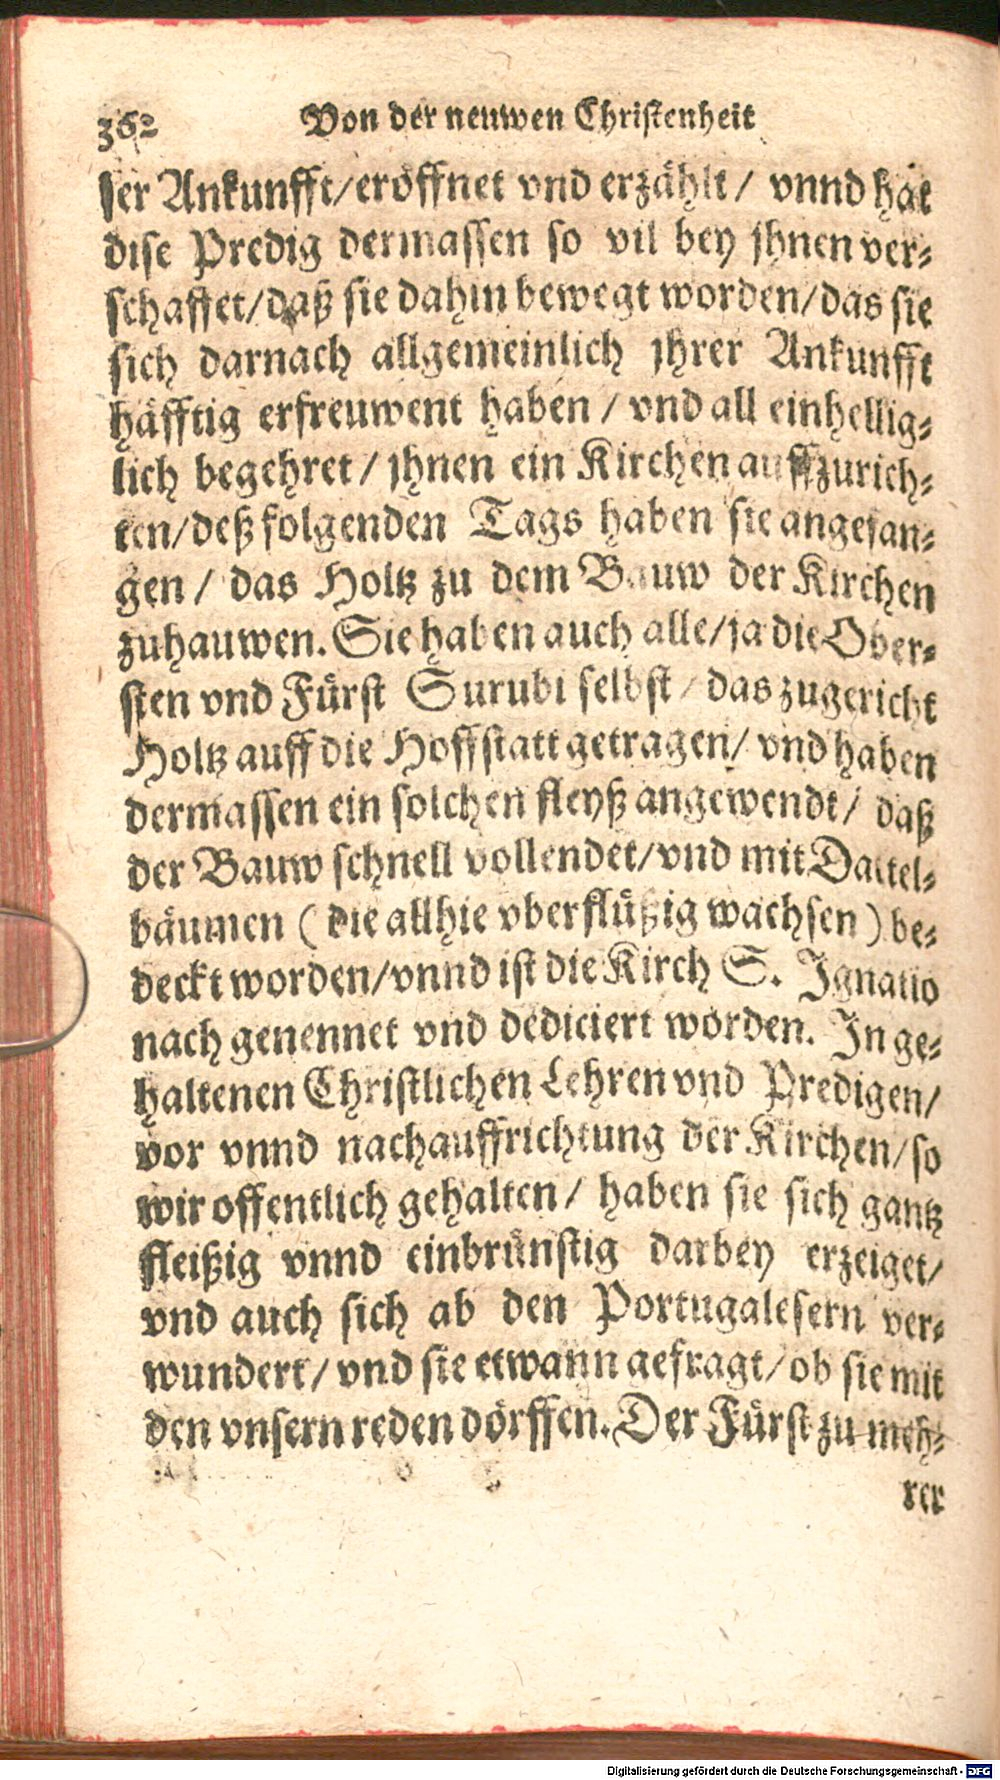 362 Von der neuwen Christenheit
ser Ankunfft/eröffnet vnd erzählt/ vnnd hat
dise Predig dermassen so vil bey jhnen ver-
schaffet/daß sie dahin bewegt worden/das sie
sich darnach allgemeinlich jhrer Ankunfft
häfftig erfreuwent haben / vnd all einhellig-
lich begehret/ jhnen ein Kirchen auffzurich-
ten/deß folgenden Tags haben sie angefan-
gen / das Holtz zu dem Bauw der Kirchen
zuhauwen. Sie haben auch alle/ja die Ober-
sten vnd Fürst Surubi selbst / das zugericht
Holtz auff die Hoffstatt getragen/ vnd haben
dermassen ein solchen fleyß angewendt/ daß
der Bauw schnell vollendet/vnd mit Dattel-
bäumen ( die allhie vberflüßig wachsen ) be-
deckt worden/vnnd ist die Kirch S. Ignatio
nach genennet vnd dediciert worden. In ge-
haltenen Christlichen Lehren vnd Predigen/
vor vnnd nachauffrichtung der Kirchen/so
wir offentlich gehalten/ haben sie sich gantz
fleißig vnnd einbrünstig darbey erzeiget/
vnd auch sich ab den Portugalesern ver-
wundert/ vnd sie etwann gefragt/ob sie mit
den vnsern reden dörffen. Der Fürst zu meh-
rer
Digitalisierung gefördert durch die Deutsche Forschungsgemeinschaft - DFG